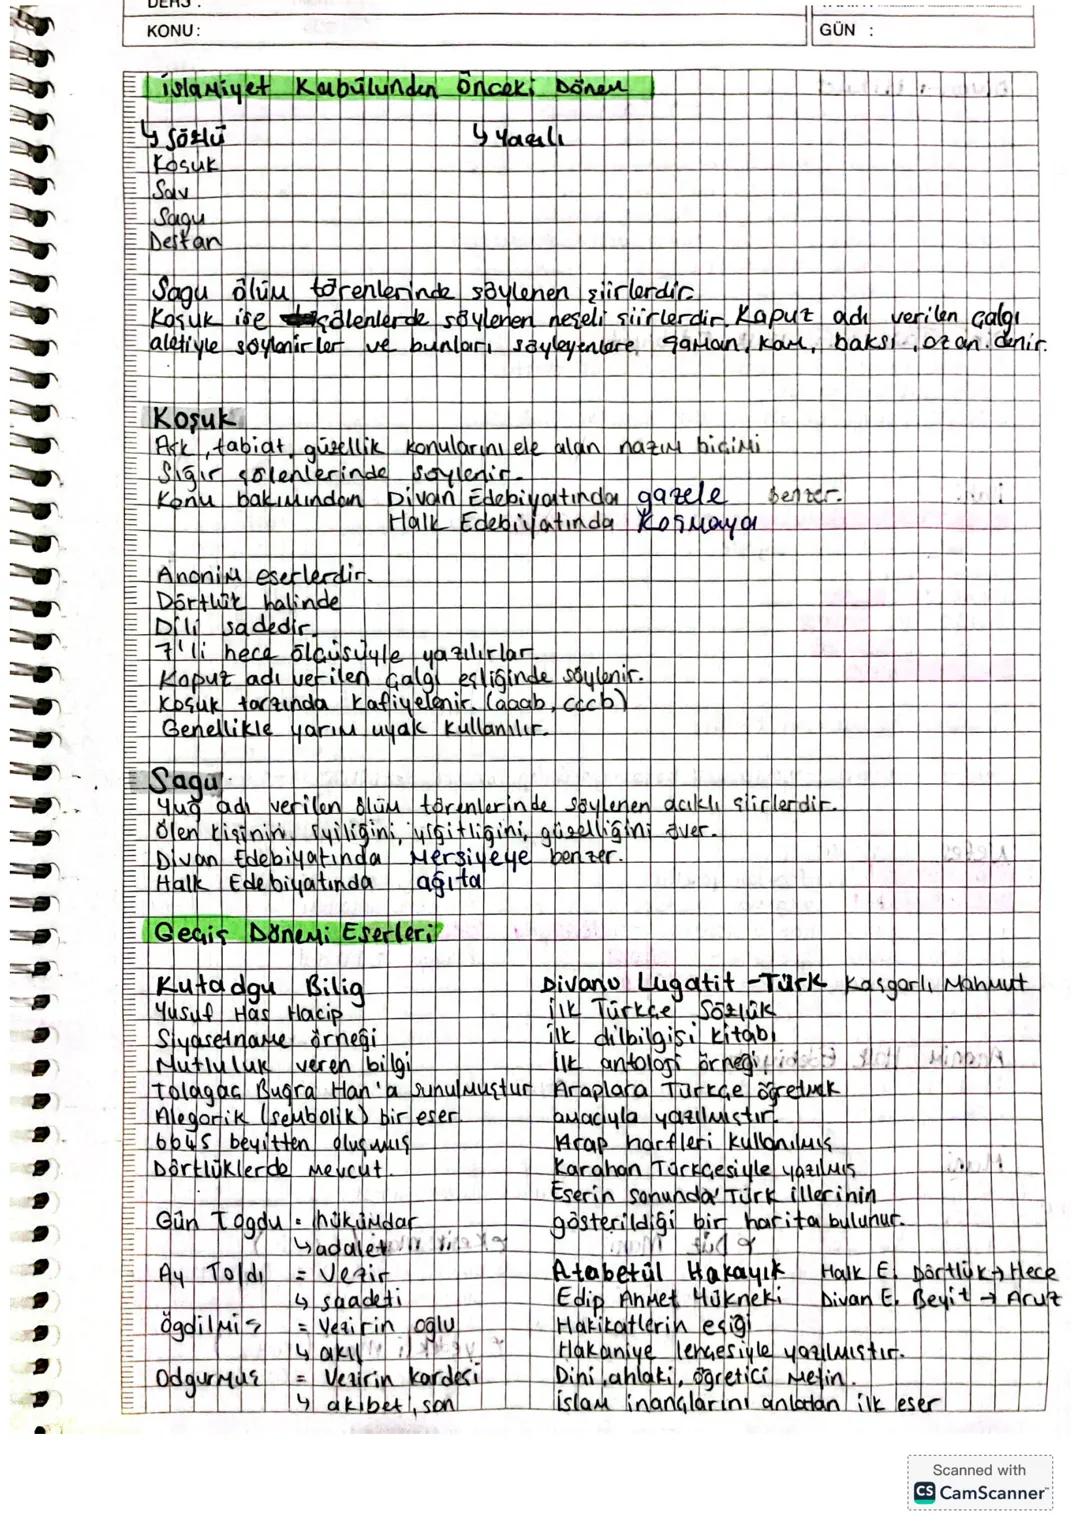 KONU:
GÜN :
İslamiyet Kabülünden Önceki Dönem
↳ Sözlü ↳ Yazılı
Koşuk
Sav
Sagu
Destan
Sagu ölüm törenlerinde söylenen şiirlerdir.
Koşuk ise şölenlerde söylenen neşeli şiirlerdir. Kapuz adı verilen çalgı
aletiyle söylenirler ve bunları söyleyenlere şaman, kam, baksı, ozan denir.
Koşuk
Aşk, tabiat, güzellik konularını ele alan nazım biçimi
Sığır şölenlerinde söylenir.
Konu bakımından Divan Edebiyatında gazele benzer.
Halk Edebiyatında Koşmaya
Anonim eserlerdir.
Dörtlük halinde
Dili sadedir.
7'li hece ölçüsüyle yazılırlar.
Kopuz adı verilen çalgı eşliğinde söylenir.
Koşuk tarzında kafiyelenir. (aaab, cccb)
Genellikle yarım uyak kullanılır.
Sagu
Yuğ adı verilen ölüm törenlerinde söylenen acıklı şiirlerdir.
Ölen kişinin iyiliğini, yiğitliğini, güzelliğini över.
Divan Edebiyatında Mersiyeye benzer.
Halk Edebiyatında ağıta
Geçiş Dönemi Eserleri
Kutadgu Bilig
Yusuf Has Hacip
Siyasetname örneği
Mutluluk veren bilgi
Tolagaç Buğra Han'a sunulmuştur
Alegorik (sembolik) bir eser
6645 beyitten oluşmuş
Dörtlüklerde mevcut.
Gün Togdu = hükümdar
↳ adalet
Ay Toldı = Vezir
↳ saadeti
Ögdilmiş = Vezirin oğlu
↳ akıl
Odgurmuş = Vezirin kardeşi
↳ akıbet, son
Divanu Lugatit-Türk Kaşgarlı Mahmut
İlk Türkçe Sözlük
İlk dilbilgisi kitabı
İlk antoloji örneği
Araplara Türkçe öğretmek
amacıyla yazılmıştır.
Arap harfleri kullanılmış
Karahan Türkçesiyle yazılmış
Eserin sonunda Türk illerinin
gösterildiği bir harita bulunur.
Atabetül Hakayık Halk E. Dörtlük → Hece
Edip Ahmet Yükneki Divan E. Beyit → Aruz
Hakikatlerin eşiği
Hakaniye lehçesiyle yazılmıştır.
Dini, ahlaki, öğretici metin.
İslam inançlarını anlatan ilk eser
Scanned with
CS CamScanner